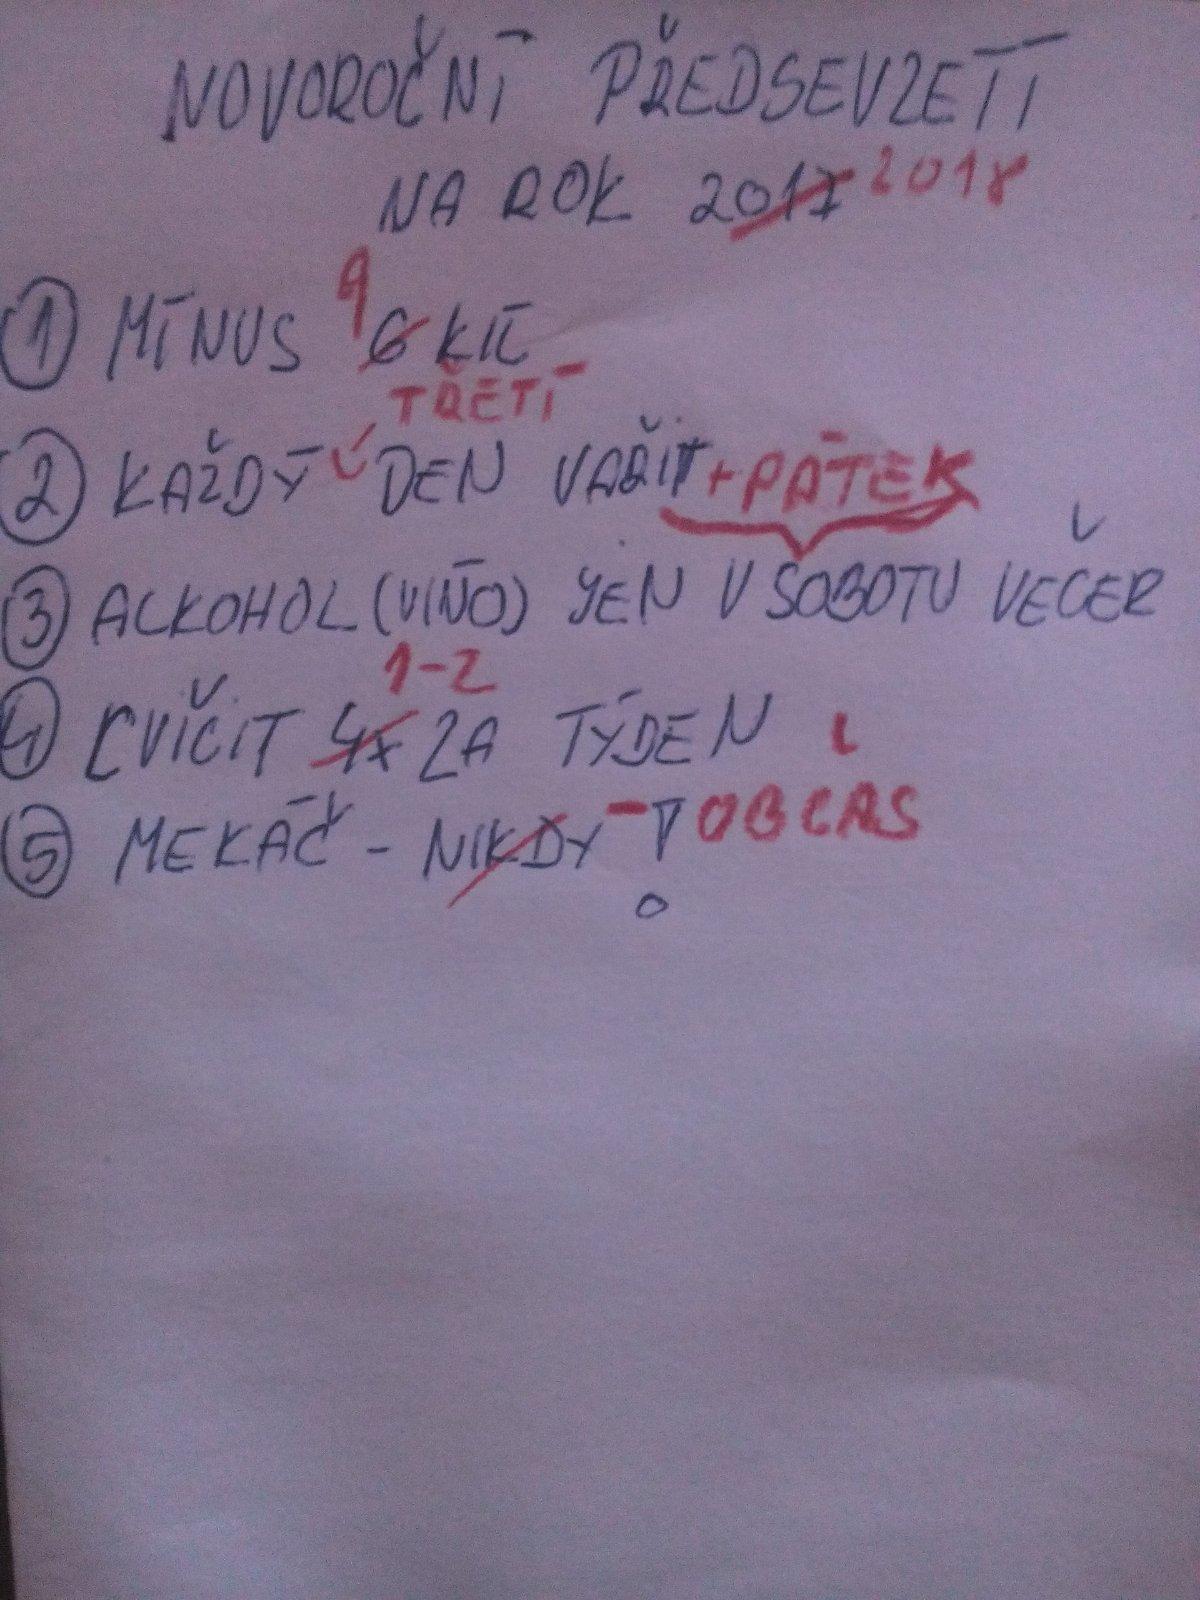 NOVOROČNÍ PŘEDSEVZETÍ
NA ROK 2017 2018
9
① MÍNUS 6 KIL
TŘETÍ
② KAŽDÝ DEN VAŘIT + PÁTEK
③ ALKOHOL (VÍNO) JEN V SOBOTU VEČER
1-2
④ CVIČIT 4x ZA TÝDEN
⑤ MEKÁČ - NIKDY - ! OBČAS